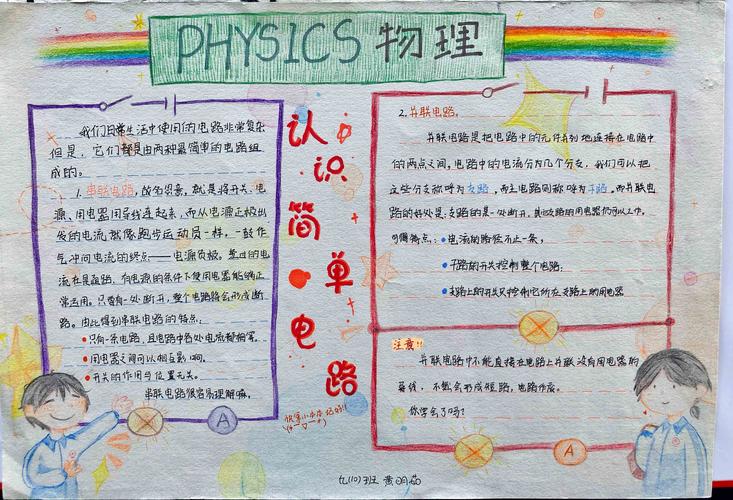 PHYSICS 物理
认识简单电路
我们日常生活中使用的电路非常复杂
但是,它们都是由两种最简单的电路组
成的。
1. 串联电路,故名思意,就是将开关、电
源、用电器用导线连起来,而从电源正极出
发的电流就像跑步运动员一样,一鼓作
气冲向电流的终点——电源负极。整过的电
流在是画路,有电源的条件下使用电器能够正
常运用。只要有一处断开,整个电路将会形成断
路。由此得到串联电路的特点:
只有一条电路,且电路中各处电流都相等。
用电器之间可以相互影响。
开关的作用与位置无关。
串联电路很容易理解嘛,
A
2. 并联电路。
并联电路是把电路中的元件并列地连接在电路中
的两点之间,电路中的电流分为几个分支,我们可以把
这些分支称呼为支路,而主电路则称呼为干路。而并联电
路的好处是:支路的是一处断开,其他支路的用电器仍可以工作。
可得特点:电流的路径不止一条,
干路的开关控制整个电路;
支路上的开关只控制它所在支路上的用电器
注意!!
并联电路中不能直接在电路上并联没有用电器的
导线,不然会形成短路,电路作废。
你学会了吗?
A
快拿小本本记好!!
九(10)班 黄明茹